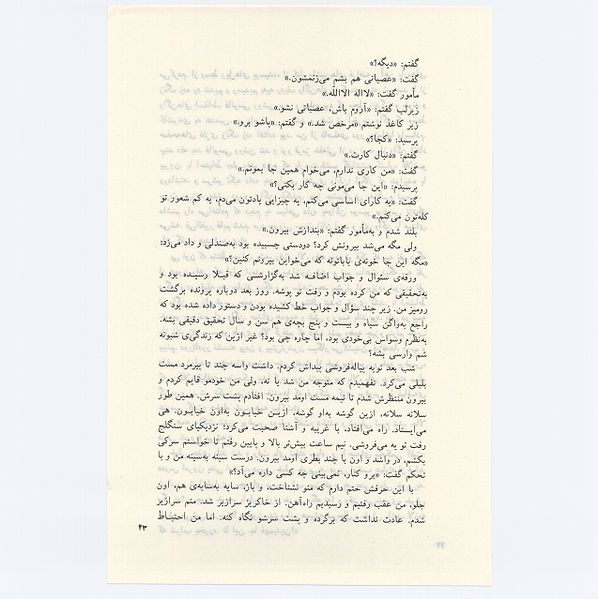 گفتم: «دیگه؟»
گفت: «عصبانی هم بشم می‌زنمشون.»
مأمور گفت: «لااله الاالله.»
زیرلب گفتم: «آروم باش، عصبانی نشو.»
زیر کاغذ نوشتم «مرخص شد.» و گفتم: «پاشو برو.»
پرسید: «کجا؟»
گفتم: «دنبال کارت.»
گفت: «من کاری ندارم، می‌خوام همین جا بمونم.»
پرسیدم: «این جا می‌مونی چه کار بکنی؟»
گفت: «یه کارای اساسی می‌کنم، یه چیزایی یادتون می‌دم، یه کم شعور تو
کله‌تون می‌کنم.»
بلند شدم و به‌مأمور گفتم: «بندازش بیرون.»
ولی مگه می‌شد بیرونش کرد؟ دودستی چسبیده بود به‌صندلی و داد می‌زد:
«مگه این جا خونه‌ی باباتونه که می‌خواین بیرونم کنین؟»
ورقه‌ی سئوال و جواب اضافه شد به‌گزارشتی که قبلا رسیده بود و
به‌تحقیقی که من کرده بودم و رفت تو پوشه. روز بعد دوباره پرونده برگشت
رومیز من. زیر چند سؤال و جواب خط کشیده بودن و دستور داده شده بود که
راجع به‌واگن سیاه و بیست و پنج بچه‌ی هم سن و سال تحقیق دقیقی بشه.
به‌نظرم وسواس بی‌خودی بود، اما چاره چی بود؟ غیر ازین که زندگی‌ی شبونه
شم وارسی بشه؟
شب بعد تویه پیاله‌فروشی پیداش کردم. داشت واسه چند تا پیرمرد مست
بلبلی می‌کرد. نفهمیدم که متوجه من شد یا نه، ولی من خودمو قایم کردم و
بیرون منتظرش شدم تا نیمه مست اومد بیرون. افتادم پشت سرش. همین طور
سلانه سلانه، ازین گوشه به‌او گوشه، ازین خیابون به‌اون خیابون. هی
می‌ایستاد. راه می‌افتاد، با غریبه و آشنا صحبت می‌کرد؛ نزدیکیای سنگلج
رفت تو یه می‌فروشی. نیم ساعت بیش‌تر بالا و پایین رفتم تا خواستم سرکی
بکشم، در واشد و اون با چند بطری اومد بیرون. درست سینه به‌سینه من و با
تحکم گفت: «برو کنار، نمی‌بینی چه کسی داره می‌آد؟»
با این حرفش حتم دارم که منو نشناخت، و باز، سایه به‌سایه‌ی هم، اون
جلو، من عقب رفتیم و رسیدیم راه‌آهن. از خاکریز سرازیر شد. منم سرازیر
شدم. عادت نداشت که برگرده و پشت سرشو نگاه کنه. اما من احتیاط
۴۳